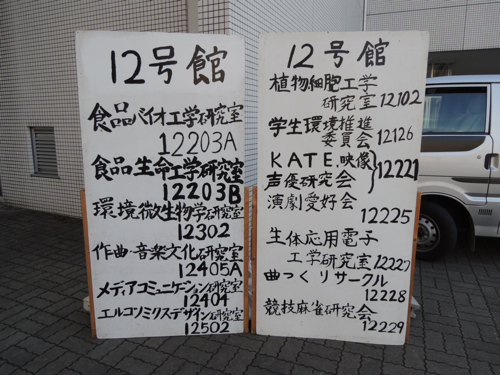 12号館
食品バイオ工学研究室
12203A
食品生命工学研究室
12203B
環境微生物学研究室
12302
作曲・音楽文化研究室
12405A
メディアコミュニケーション研究室
12404
エルゴノミクスデザイン研究室
12502
12号館
植物細胞工学
研究室12102
学生環境推進
委員会 12126
KATE.映像
声優研究会 }12221
演劇愛好会
12225
生体応用電子
工学研究室12227
曲つくりサークル
12228
競技麻雀研究会
12229